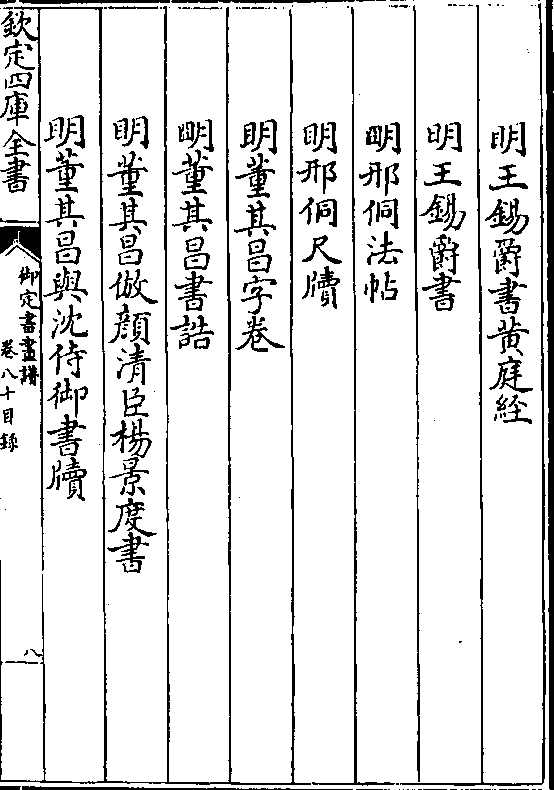 明王錫爵書黄庭經
明王錫爵書
明邢侗法帖
明邢侗尺牘
明董其昌字卷
明董其昌書誥
明董其昌倣顔清臣楊景度書
明董其昌與沈侍御書牘
欽定四庫全書
御定書畫譜
卷八十目錄
八